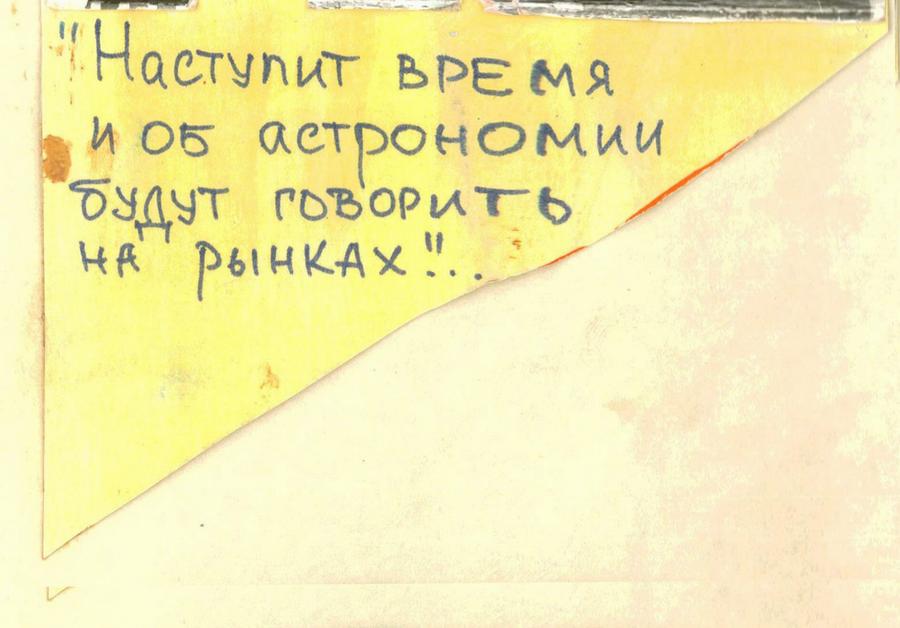 "Наступит время
и об астрономии
будут говорить
на рынках"!..